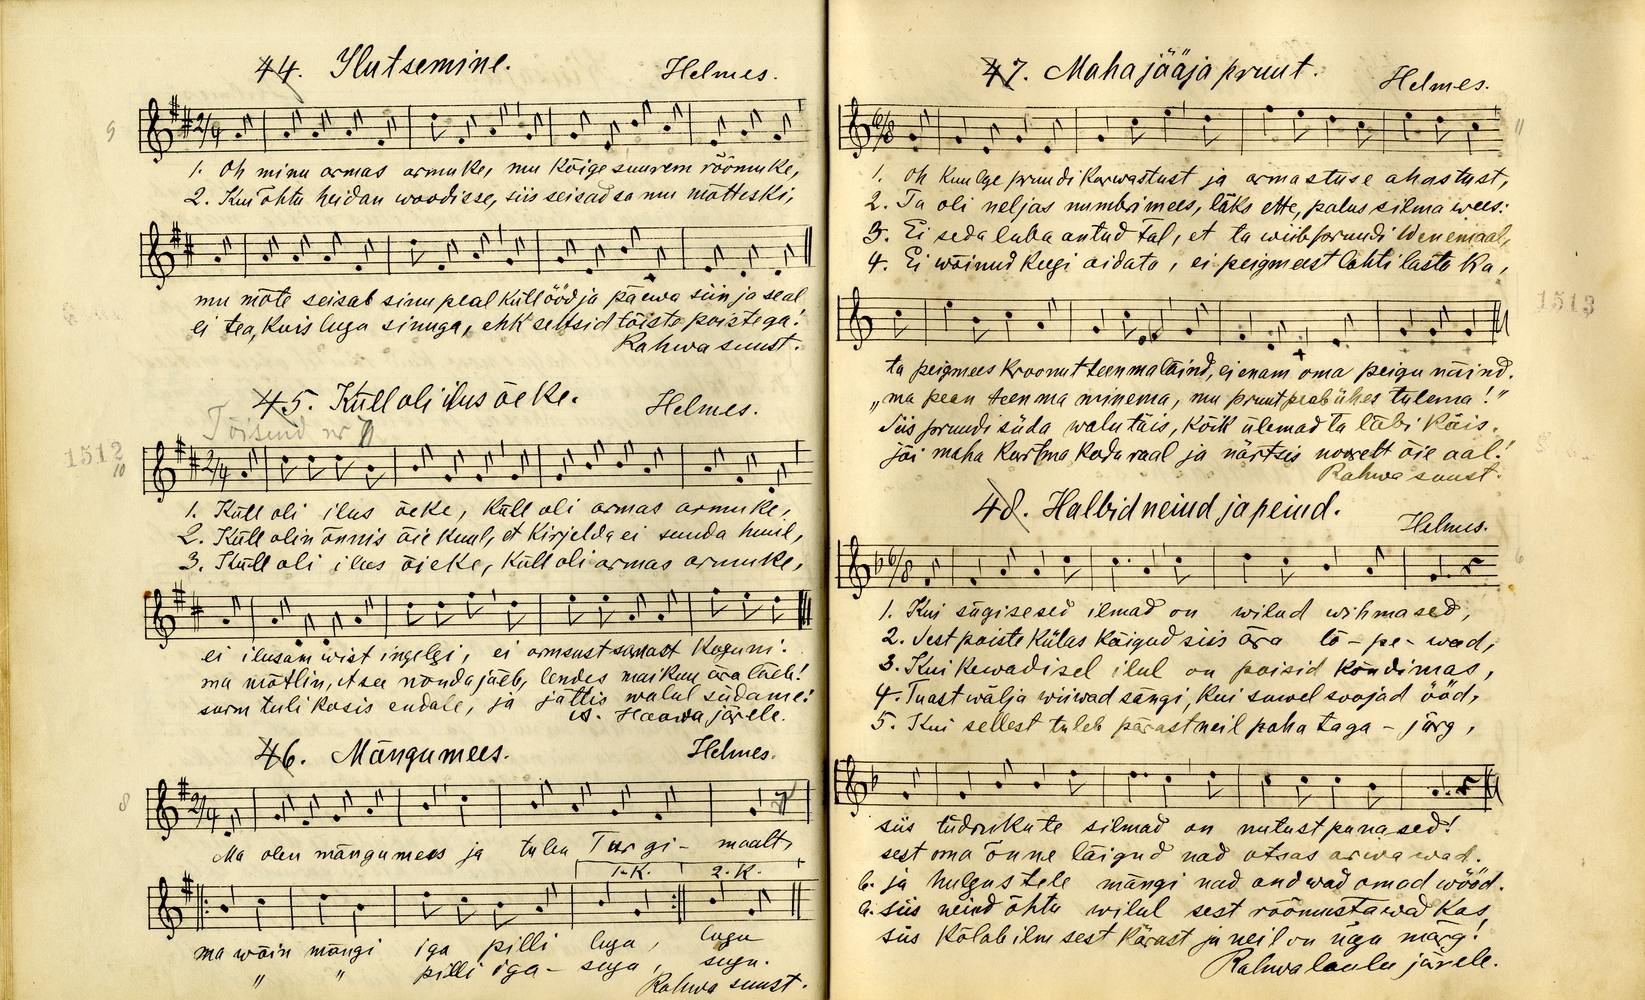 44. Ilutsemine.
Helmes.
9
1. Oh minu armas armuke, mu kõige suurem rõõmuke,
2. Kui õhtu heidan woodisse, siis seisad sa mu mõtteski,
mu mõte seisab sinu peal küll ööd ja päewa siin ja seal
ei tea, kuis luga sinuga, ehk seltsid tõiste poistega!
Rahwa suust.
45. Küll oli ilus õeke.
Helmes.
Tõisend nr
1512
10
1. Küll oli ilus õeke, küll oli armas armuke,
2. Küll olin õnnis õie kuul, et kirjelda ei suuda huul,
3. Küll oli ilus õieke, küll oli armas armuke,
ei ilusam wist ingelgi, ei armsust samast koguni.
ma mõtlin, et see nõnda jääb, lendes maikuu ära lääb!
surm tuli kosis endale, ja jättis walul südame!
A. Haawa järele.
46. Mängumees.
Helmes.
8
Ma olen mängumees ja tulen Türgi- maalt,
1. K. 2. K.
ma wõin mängi iga pilli lugu, lugu
" " pilli iga- sugu, sugu.
Rahwa suust.
47. Maha jääja pruut.
Helmes.
11
1. Oh kuulge pruudi karwastust ja armastuse ahastust,
2. Ta oli neljas numbrimees, läks ette, palus silma wees:
3. Ei seda luba antud tal, et ta wiib pruudi Wenemaal,
4. Ei wõinud keegi aidata, ei peigmeest lahti lasta ka,
1513
ta peigmees kroonut teenma läind, ei enam oma peigu näind.
„ma pean teenma minema, mu pruut peab ühes tulema!"
Siis pruudi süda walu täis, kõik ülemad ta läbi käis.
jäi maha kurtma kodu raal ja närtsis noorelt õie aal!
Rahwa suust.
48. Halbid neiud ja peiud.
Helmes.
1. Kui sügisesed ilmad on wilud wihmased,
2. Sest poiste külas käigud siis ära lõ-pe-wad,
3. Kui kewadisel ilul on poisid kõndimas,
4. Tuast wälja wiiwad sängi, kui suwel soojad ööd,
5. Kui sellest tuleb pärast neil paha taga-järg,
siis tüdrukute silmad on nutust punased!
sest oma õnne läigud nad otsas arwawad.
b. ja hulgustele mängi nad andwad omad wööd.
a. siis neiud õhtu wilul sest rõõmustawad kas,
siis kõlab ilm sest kärast ja neil on üga märg!
Rahwa laulu järele.